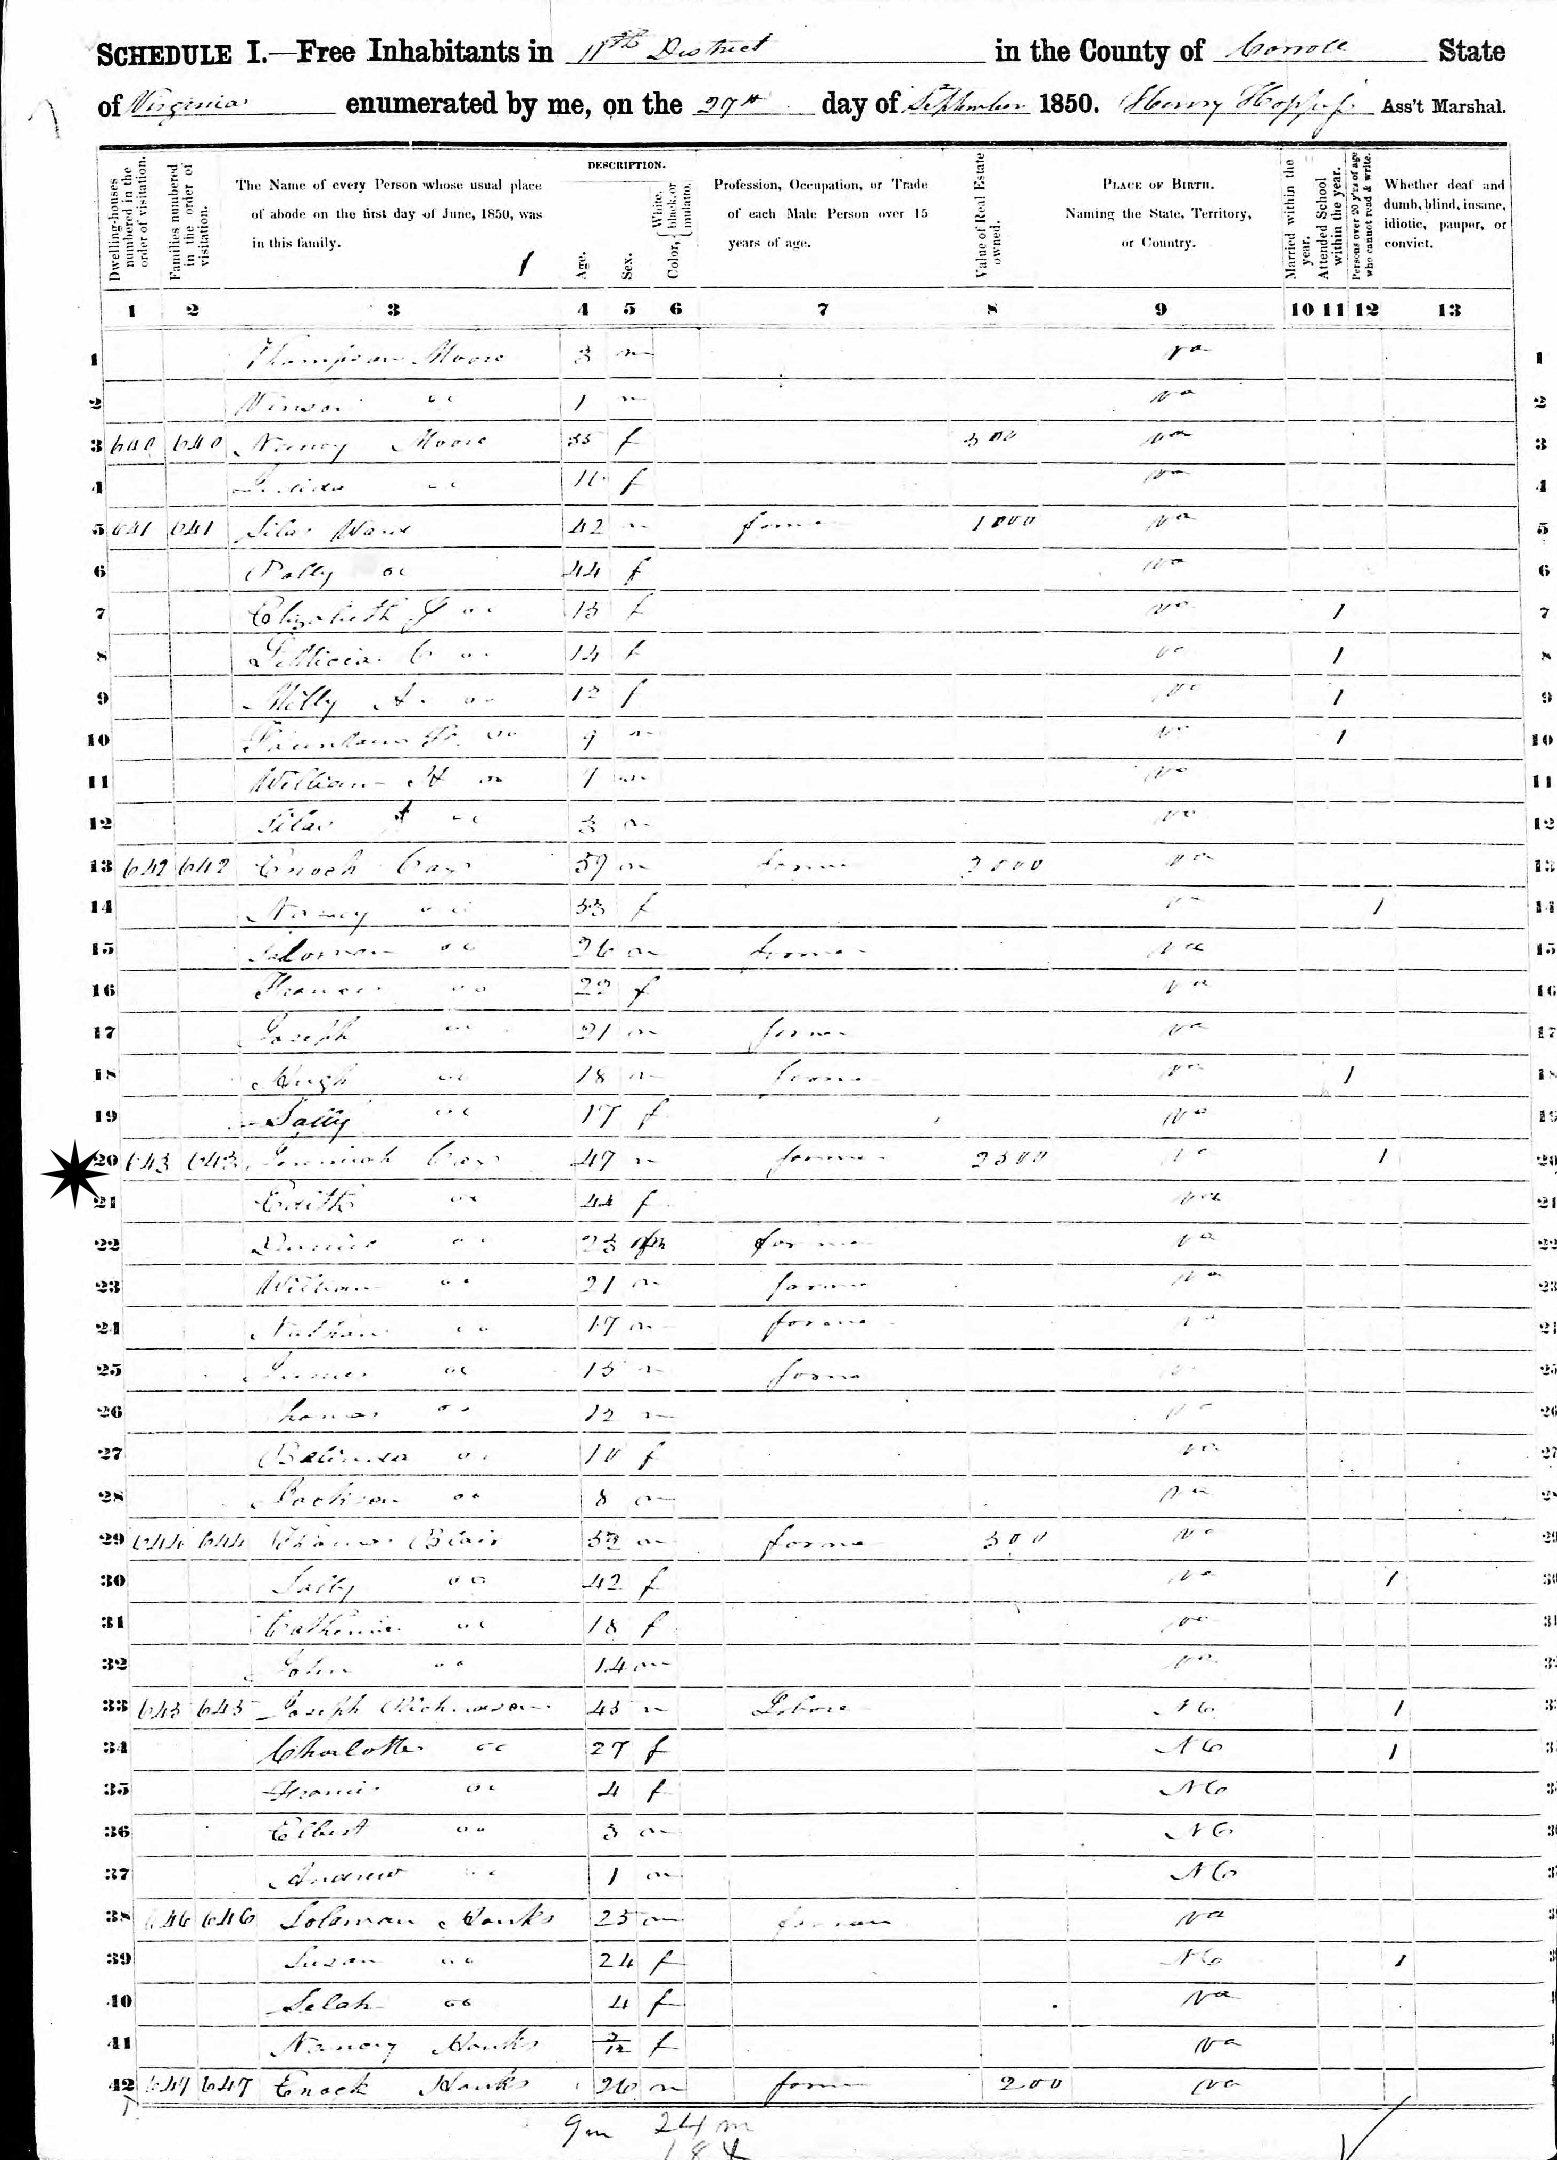 SCHEDULE I.—Free Inhabitants in 11th District in the County of Carroll State
of Virginia enumerated by me, on the 27th day of September 1850. Henry Ass't Marshal.
Dwelling-houses numbered in the order of visitation.
Families numbered in the order of visitation.
The Name of every Person whose usual place of abode on the first day of June, 1850, was in this family.
1
DESCRIPTION.
Age.
Sex.
Color, White, black, or mulatto.
Profession, Occupation, or Trade of each Male Person over 15 years of age.
Value of Real Estate owned.
PLACE OF BIRTH. Naming the State, Territory, or Country.
Married within the year.
Attended School within the year.
Persons over 20 y'rs of age who cannot read & write.
Whether deaf and dumb, blind, insane, idiotic, pauper, or convict.
1 2 3 4 5 6 7 8 9 10 11 12 13
1 Thompson Moore 3 m va 1
2 " " 1 m va 2
3 640 640 Nancy Moore 35 f 300 va 3
4 " " 11 f va 4
5 641 641 Silas Ward 42 m farmer 1000 va 5
6 Polly " " 44 f va 6
7 Elizabeth J " " 15 f va 1 7
8 Letticia C " " 14 f va 1 8
9 Milly A " " 12 f va 1 9
10 Fountain " " 9 m va 1 10
11 William H " " 7 m va 11
12 Silas A " " 3 m va 12
13 642 642 Enoch Cox 59 m farmer 2000 va 13
14 Nancy " " 53 f va 1 14
15 Solomon " " 26 m farmer va 15
16 Frances " " 22 f va 16
17 Joseph " " 21 m farmer va 17
18 Hugh " " 18 m farmer va 1 18
19 Sally " " 17 f va 19
20 643 643 Jeremiah Cox 47 m farmer 2500 va 1 20
21 Edith " " 44 f va 21
22 " " 23 m farmer va 22
23 William " " 21 m farmer va 23
24 Nathan " " 17 m farmer va 24
25 James " " 15 m farmer va 25
26 Thomas " " 12 m va 26
27 Belinda " " 10 f va 27
28 Jackson " " 8 m va 28
29 644 644 Thomas Blair 52 m farmer 300 va 29
30 Sally " " 42 f va 1 30
31 Catherine " " 18 f va 31
32 John " " 14 m va
33 645 645 Joseph Richardson 45 m Labore NC 1
34 Charlotte " " 27 f NC 1
35 " " 4 f NC
36 Elbert " " 3 m NC
37 Andrew " " 1 m NC
38 646 646 Solaman Hanks 25 m farmer va
39 Susan " " 24 f NC 1
40 Selah " " 4 f va
41 Nancy Hanks f va
42 647 647 Enock Hanks 26 m farmer 200 va
9m 24m
184